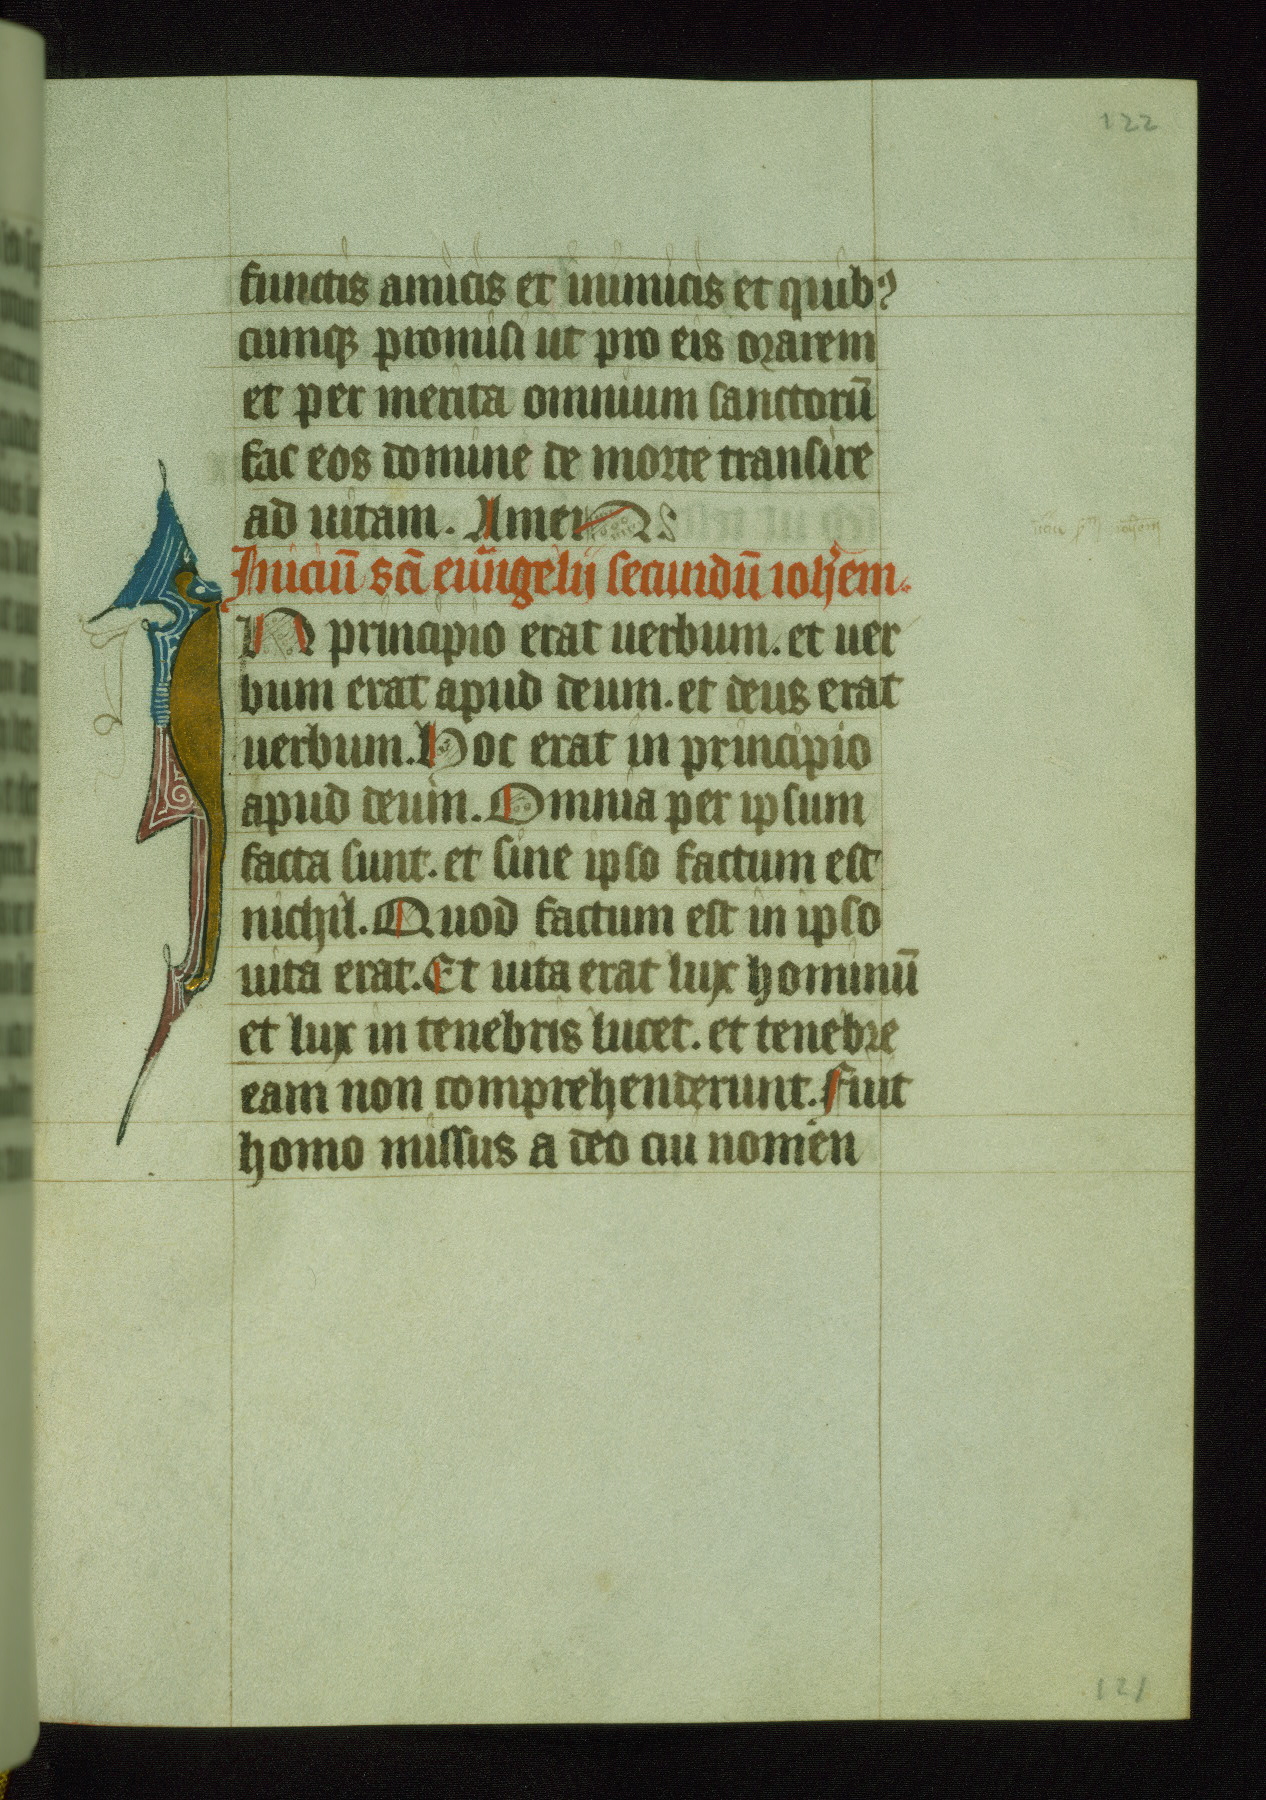 122
functis amicis et inimicis et quibꝰ
cumqꝫ promisi ut pro eis orarem
et per merita omnium sanctorū
fac eos domine de morte transire
ad uitam. Amen
Iniciū sc̄i euu̅gelii secundū ioh̄em.
IN principio erat uerbum. et uer
bum erat apud deum. et deus erat
uerbum. Hoc erat in principio
apud deum. Omnia per ipsum
facta sunt. et sine ipso factum est
nichil. Quod factum est in ipso
uita erat. Et uita erat lux hominū
et lux in tenebris lucet. et tenebre
eam non comprehenderunt. Fuit
homo missus a deo cui nomen
121